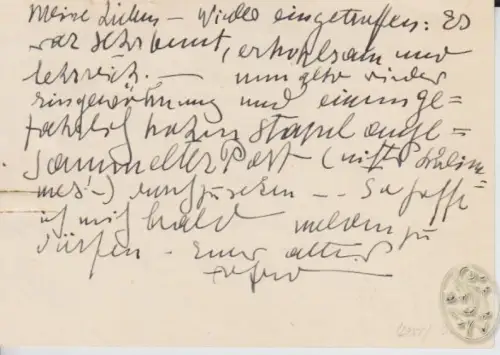 Meine Lieben – Wieder eingetroffen: Es
war sehr bunt, erholsam und
lehrreich. — nun geht wieder
Eingewöhnung und einen ge=
hohen Stapel ange=
sammelter Post (nichts Schlim=
mes!–) – – So hoffe
ich mich bald melden zu
dürfen – Euer alter